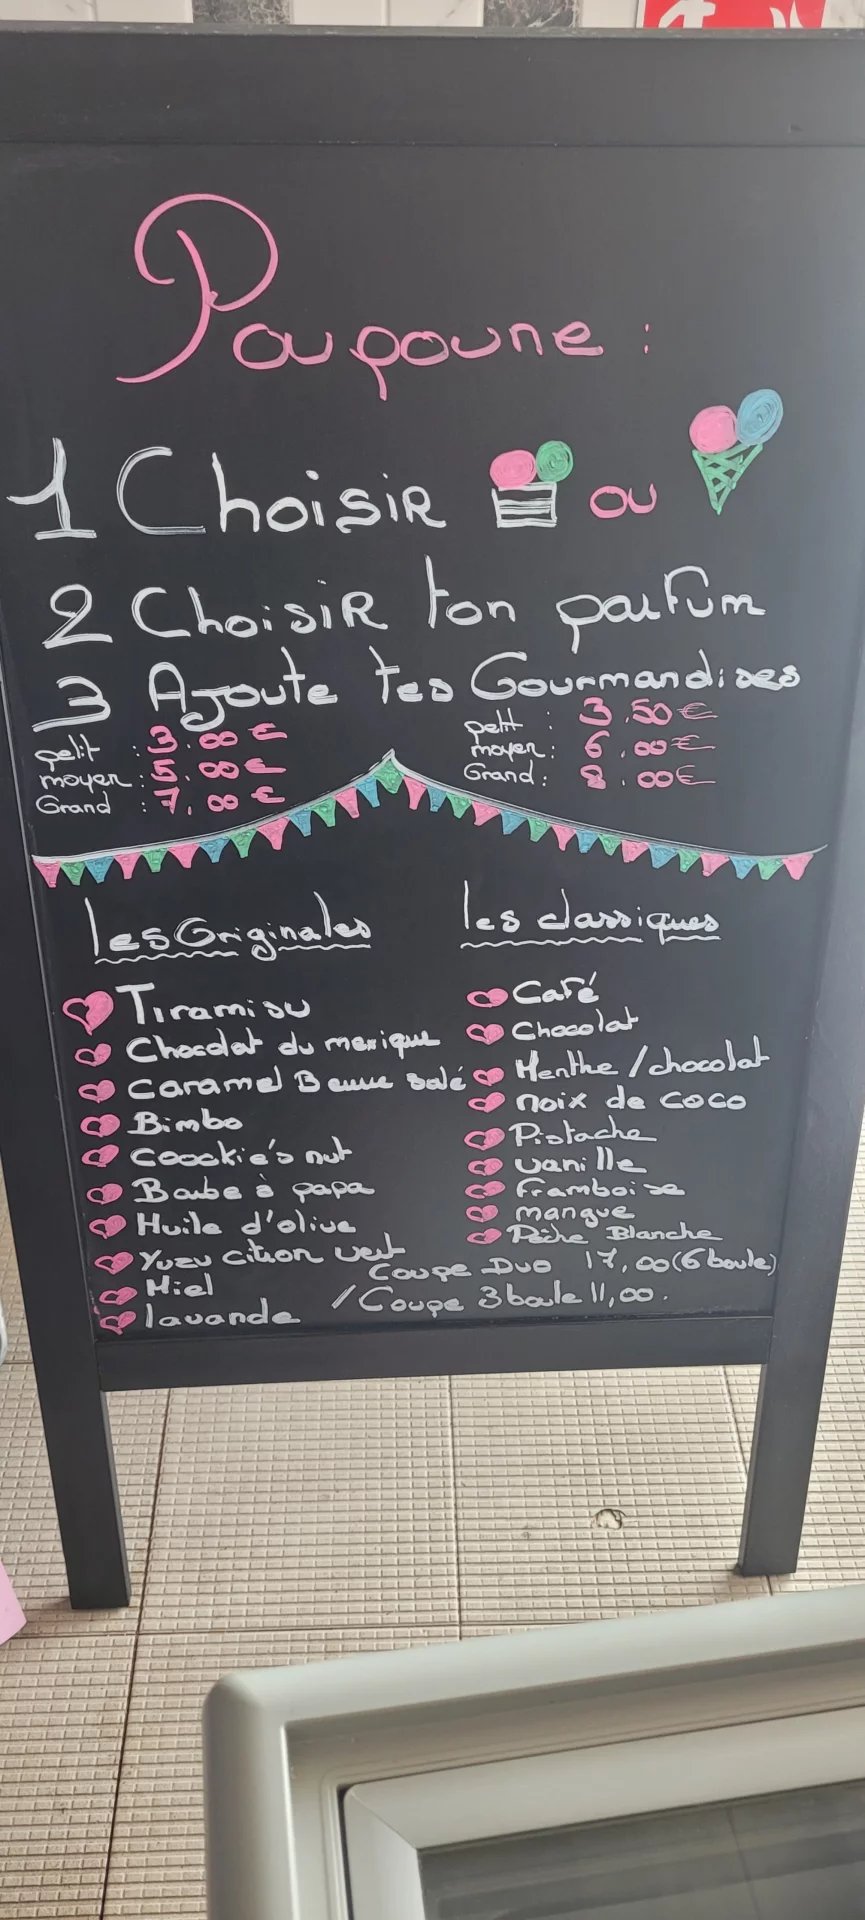 Poupoune :
1 Choisir ou
2 Choisir ton parfum
3 Ajoute tes Gourmandises
petit : 3.00€
moyen : 5.00€
Grand : 7,00€
petit : 3.50€
moyen : 6.00€
Grand : 8.00€
les Originales
Tiramisu
Chocolat du mexique
Caramel Beurre salé
Bimbo
Coookie's nut
Barbe à papa
Huile d'olive
Yuzu citron vert
Miel
lavande
les classiques
Café
Chocolat
Menthe / chocolat
noix de coco
Pistache
vanille
framboise
mangue
Pêche Blanche
Coupe Duo 17,00 (6 boule)
/ Coupe 3 boule 11,00.